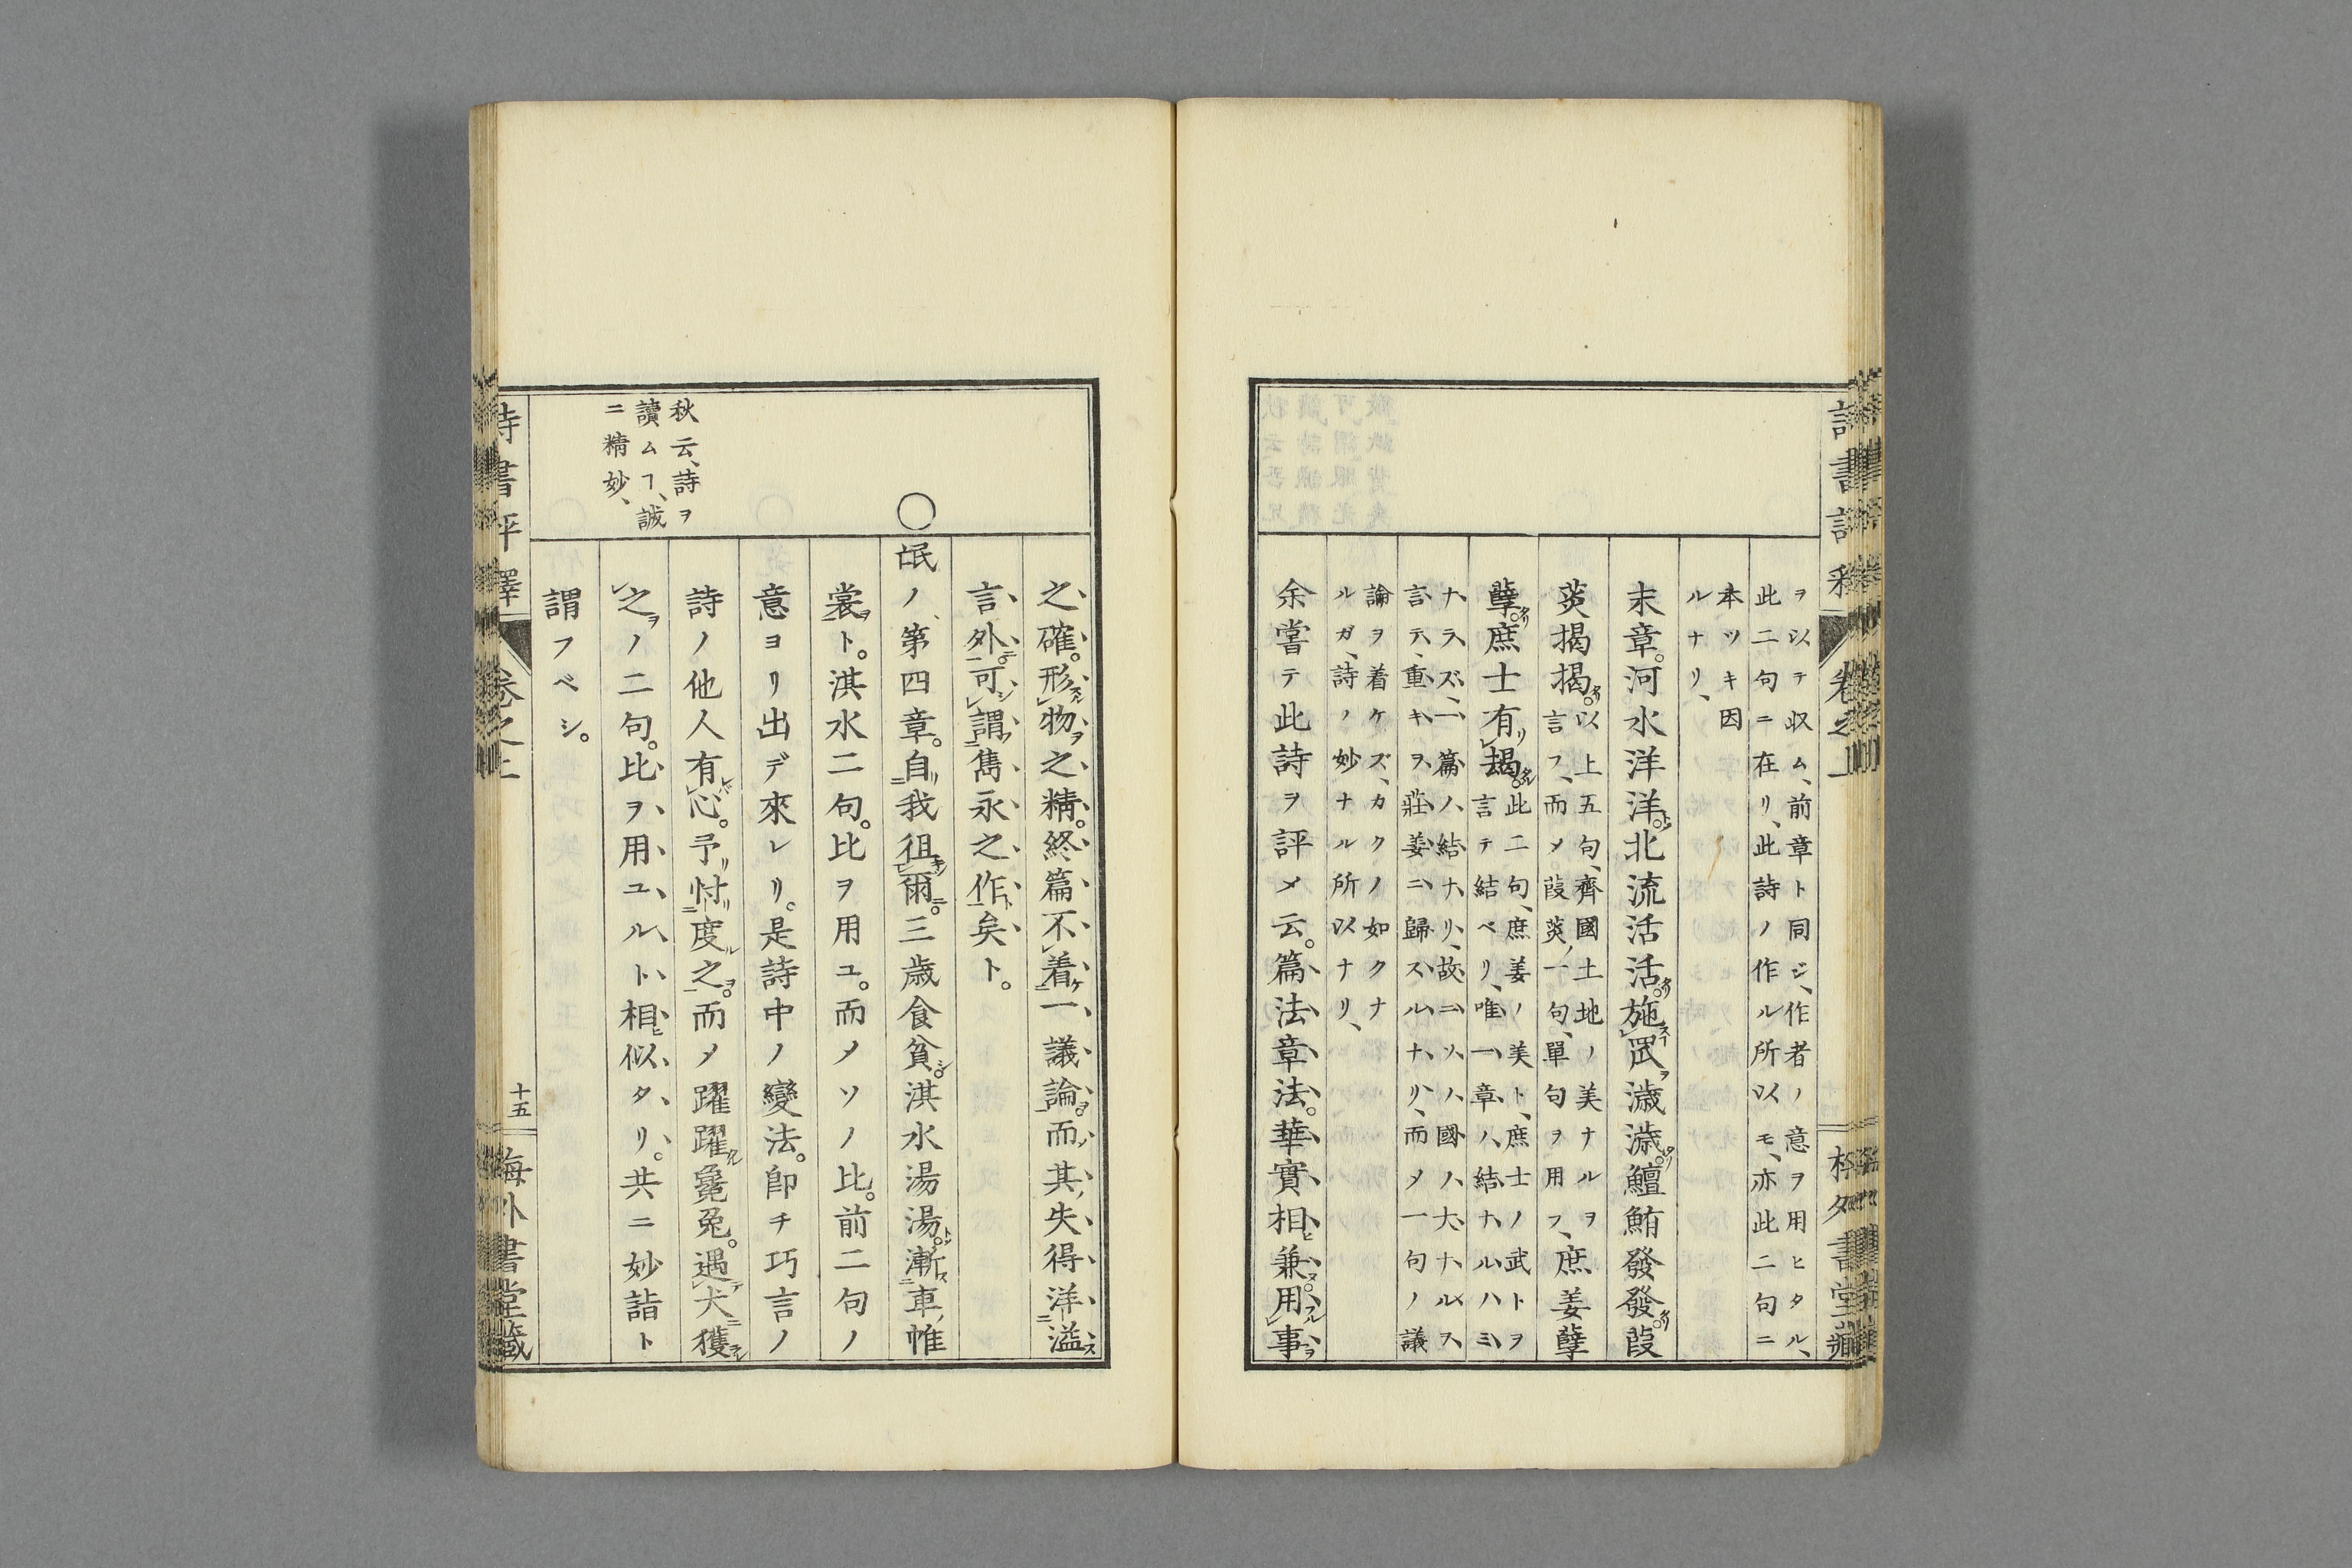 ヲ以テ収ム、前章ト同ジ、作者ノ意ヲ用ヒタル、
此二句ニ在リ、此詩ノ作ル所以モ、亦此二句ニ
本ツキ因
ルナリ、
末章。河水洋洋。北流活活。施罛濊濊。鱣鮪發發。葭
菼揭揭。
以上五句、齊國土地ノ美ナルヲ
言フ、而メ葭菼ノ一句、單句ヲ用フ、
庶姜孽
孽。庶士有朅。
此二句、庶姜ノ美ト、庶士ノ武トヲ
言テ結ベリ、唯一章ノ結ナルハミ
ナラズ、一篇ノ結ナリ、故ニソノ國ノ大ナルス
言テ、重キヲ莊姜ニ歸スルナリ、而メ一句ノ議
論ヲ着ケズ、カクノ如クナ
ルガ、詩ノ妙ナル所以ナリ、
余嘗テ此詩ヲ評メ云。篇法章法。華實相兼。用事
之確。形物之精。終篇不着一議論。而其失得洋溢
言外。可謂雋永之作矣ト。
〇
氓ノ第四章。自我徂爾。三歲食貧。淇水湯湯。漸車帷
裳ト。淇水二句。比ヲ用ユ。而メソノ比。前二句ノ
意ヨリ出デ來レリ。是詩中ノ變法。卽チ巧言ノ
詩ノ他人有心。予忖度之。而メ躍躍毚兔。遇犬獲
之ノ二句。比ヲ用ユルト相似タリ。共ニ妙詣ト
謂フベシ。
秋云、詩ヲ
讀ムヿ、誠
ニ精妙、
詩書評釋
卷之上
十五
海外書堂藏